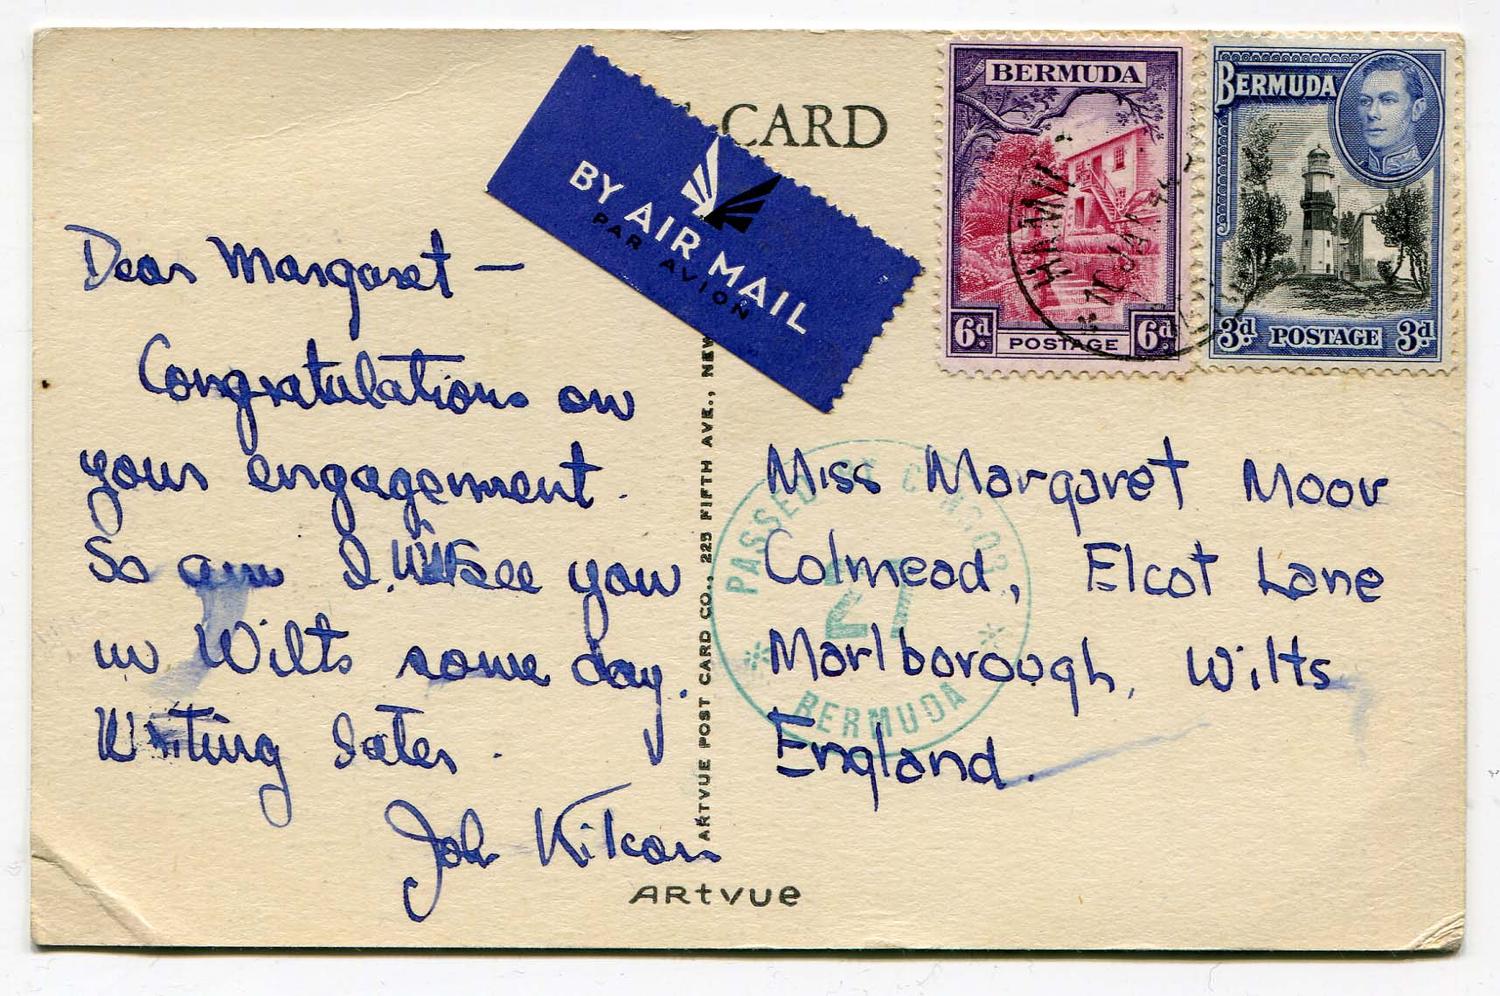 CARD
BY AIR MAIL
PAR AVION
BERMUDA
6d 6d
POSTAGE
BERMUDA
3d POSTAGE 3d
Dear Margaret —
Congratulations on
your engagement.
So am I. Will see you
in Wilts some day.
Writing later.
John
ARTVUE POST CARD CO., 225 FIFTH AVE., NEW
PASSED BY CENSOR
27
BERMUDA
Miss Margaret Moor
Colmead, Elcot Lane
Marlborough, Wilts
England.
ARTVUE